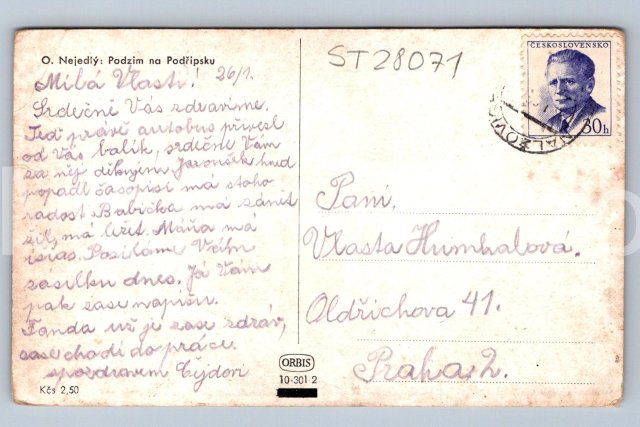 O. Nejedlý: Podzim na Podřipsku
ST28071
Milá Vlasti! 26/1.
Srdečně Vás zdravíme.
Teď právě autobus přivezl
od Vás balík, srdečně Vám
za něj děkujem Jaroušek hned
popadl časopisi má z toho
radost Babička má zánět
žil, má ležet. Máňa má
isias. Posíláme Vám
zásilku dnes. Já Vám
pak zase napíšu.
Fanda už je zase zdráv,
zase chodí do práce.
s pozdravem
Kčs 2,50
ORBIS
10-301 2
ČESKOSLOVENSKO
30h
Paní.
Vlasta Humhalová.
Oldřichova 41.
Praha 2.